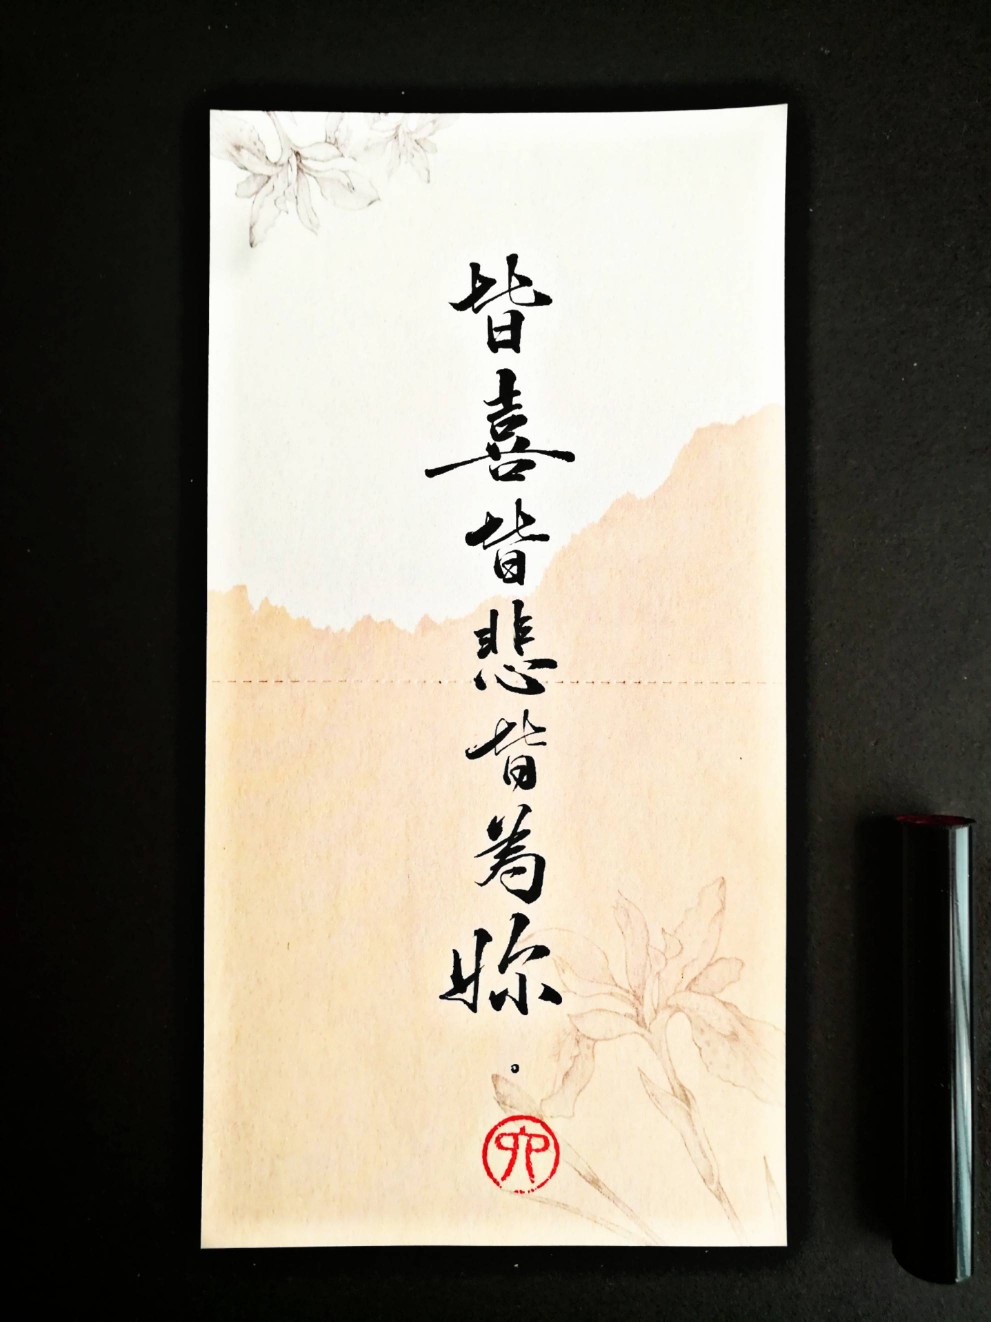 皆喜皆悲皆為妳。
卯